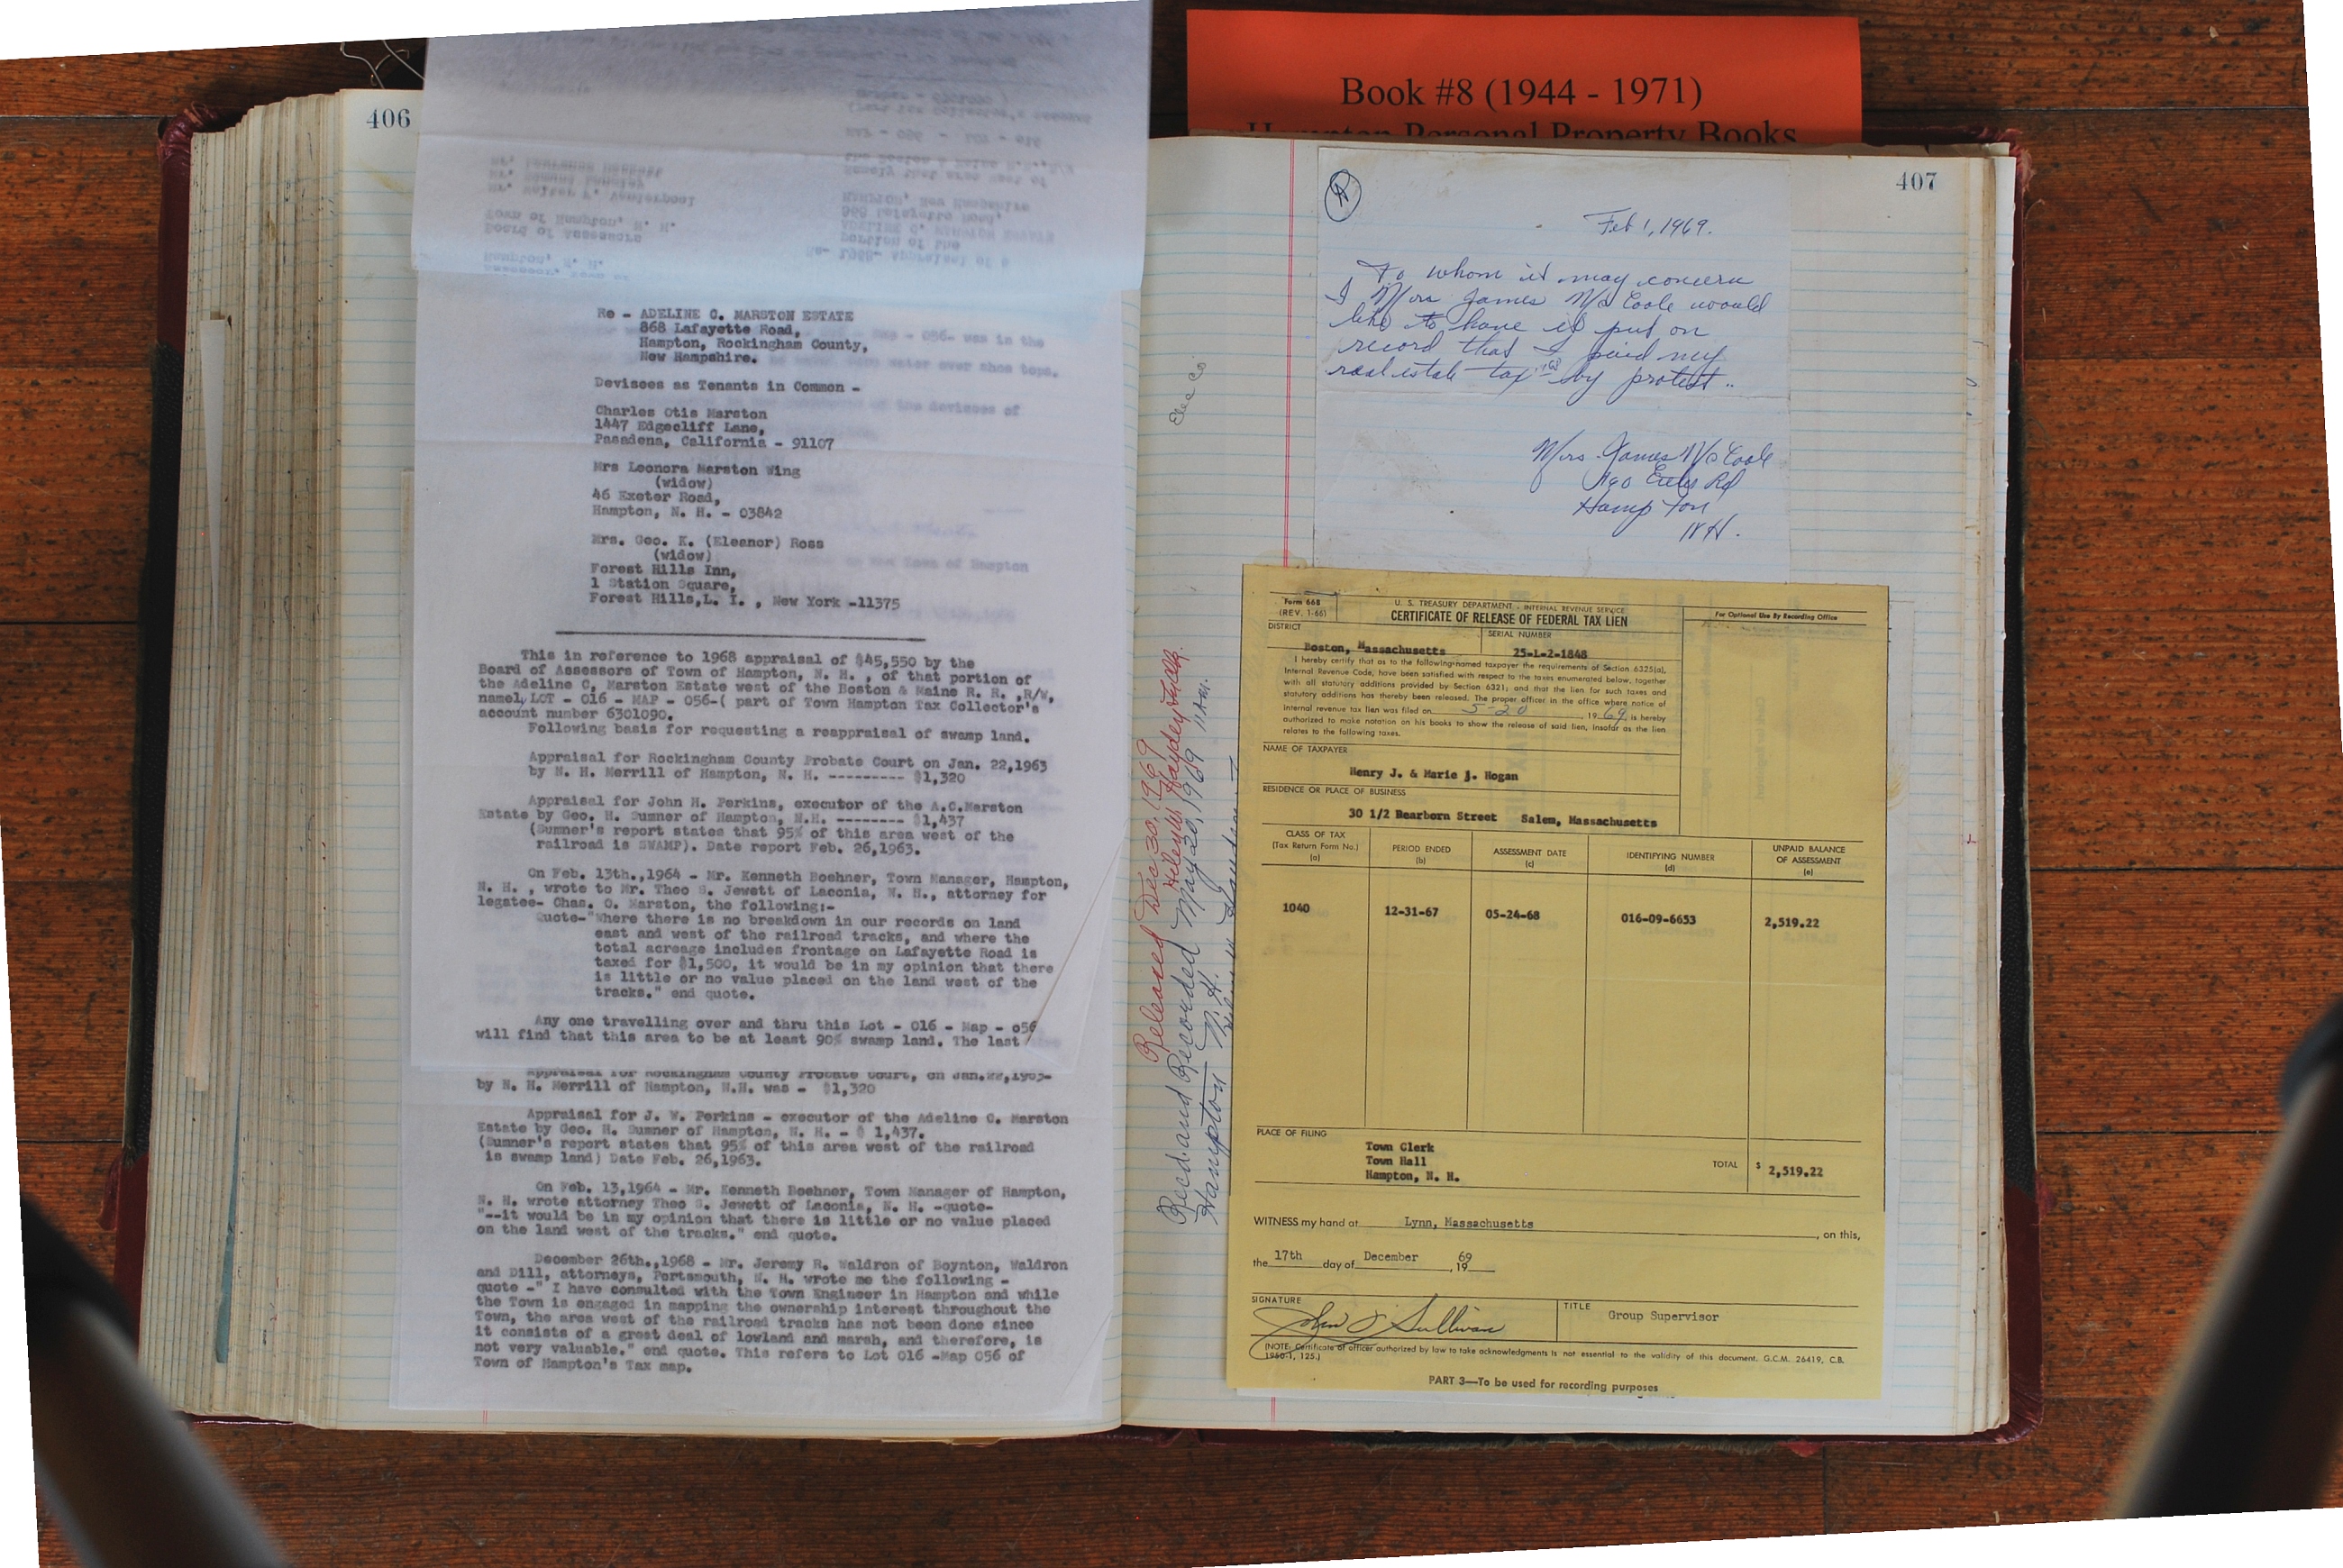 Book #8 (1944 - 1971)
Hampton Personal Property Books
406
Re - ADELINE C. MARSTON ESTATE
868 Lafayette Road,
Hampton, Rockingham County,
New Hampshire.
Devisees as Tenants in Common -
Charles Otis Marston
1447 Edgecliff Lane,
Pasadena, California - 91107
Mrs Leonora Marston Wing
(widow)
46 Exeter Road,
Hampton, N. H. - 03842
Mrs. Geo. K. (Eleanor) Ross
(widow)
Forest Hills Inn,
1 Station Square,
Forest Hills,L. I. , New York -11375
This in reference to 1968 appraisal of $45,550 by the
Board of Assessors of Town of Hampton, N. H. , of that portion of
the Adeline C. Marston Estate west of the Boston & Maine R. R. ,R/W,
namely LOT - 016 - MAP - 056-( part of Town Hampton Tax Collector's
account number 6301090.
Following basis for requesting a reappraisal of swamp land.
Appraisal for Rockingham County Probate Court on Jan. 22,1963
by N. H. Merrill of Hampton, N. H. --------- $1,320
Appraisal for John H. Perkins, executor of the A.C.Marston
Estate by Geo. H. Sumner of Hampton, N.H. -------- $1,437
(Sumner's report states that 95% of this area west of the
railroad is SWAMP). Date report Feb. 26,1963.
On Feb. 13th.,1964 - Mr. Kenneth Boehner, Town Manager, Hampton,
N. H. , wrote to Mr. Theo S. Jewett of Laconia, N. H., attorney for
legatee- Chas. O. Marston, the following:-
Quote-"Where there is no breakdown in our records on land
east and west of the railroad tracks, and where the
total acreage includes frontage on Lafayette Road is
taxed for $1,500, it would be in my opinion that there
is little or no value placed on the land west of the
tracks." end quote.
Any one travelling over and thru this Lot - 016 - Map - 056
will find that this area to be at least 90% swamp land. The last
Appraisal for Rockingham County Probate Court, on Jan.22,1963-
by N. H. Merrill of Hampton, N.H. was - $1,320
Appraisal for J. W. Perkins - executor of the Adeline C. Marston
Estate by Geo. H. Sumner of Hampton, N. H. - $ 1,437.
(Sumner's report states that 95% of this area west of the railroad
is swamp land) Date Feb. 26,1963.
On Feb. 13,1964 - Mr. Kenneth Boehner, Town Manager of Hampton,
N. H. wrote attorney Theo S. Jewett of Laconia, N. H. -quote-
"--it would be in my opinion that there is little or no value placed
on the land west of the tracks." end quote.
December 26th.,1968 - Mr. Jeremy R. Waldron of Boynton, Waldron
and Dill, attorneys, Portsmouth, N. H. wrote me the following -
quote -" I have consulted with the Town Engineer in Hampton and while
the Town is engaged in mapping the ownership interest throughout the
Town, the area west of the railroad tracks has not been done since
it consists of a great deal of lowland and marsh, and therefore, is
not very valuable." end quote. This refers to Lot 016 -Map 056 of
Town of Hampton's Tax map.
407
Feb 1, 1969.
To whom it may concern
I Mrs James Mc Coole would
like to have it put on
record that I paid my
real estate tax '68 by protest ..
Mrs. James Mc Coole
Hampton
NH.
Released Dec 30, 1969
Helen W. Hayden
Rec'd. and Recorded May 20, 1969 11 A.M.
Hampton N. H.
Form 668
(REV. 1-66)
U. S. TREASURY DEPARTMENT - INTERNAL REVENUE SERVICE
CERTIFICATE OF RELEASE OF FEDERAL TAX LIEN
For Optional Use By Recording Office
DISTRICT
Boston, Massachusetts
SERIAL NUMBER
25-L-2-1848
I hereby certify that as to the following-named taxpayer the requirements of Section 6325(a),
Internal Revenue Code, have been satisfied with respect to the taxes enumerated below, together
with all statutory additions provided by Section 6321; and that the lien for such taxes and
statutory additions has thereby been released. The proper officer in the office where notice of
internal revenue tax lien was filed on 5-20, 1969, is hereby
authorized to make notation on his books to show the release of said lien, insofar as the lien
relates to the following taxes.
NAME OF TAXPAYER
Henry J. & Marie J. Hogan
RESIDENCE OR PLACE OF BUSINESS
30 1/2 Bearborn Street Salem, Massachusetts
CLASS OF TAX
(Tax Return Form No.)
(a)
PERIOD ENDED
(b)
ASSESSMENT DATE
(c)
IDENTIFYING NUMBER
(d)
UNPAID BALANCE
OF ASSESSMENT
(e)
1040 12-31-67 05-24-68 016-09-6653 2,519.22
PLACE OF FILING
Town Clerk
Town Hall
Hampton, N. H.
TOTAL $ 2,519.22
WITNESS my hand at Lynn, Massachusetts, on this,
the 17th day of December, 1969
SIGNATURE
John J Sullivan
TITLE
Group Supervisor
(NOTE: Certificate of officer authorized by law to take acknowledgments is not essential to the validity of this document. G.C.M. 26419, C.B.
1950-1, 125.)
PART 3—To be used for recording purposes